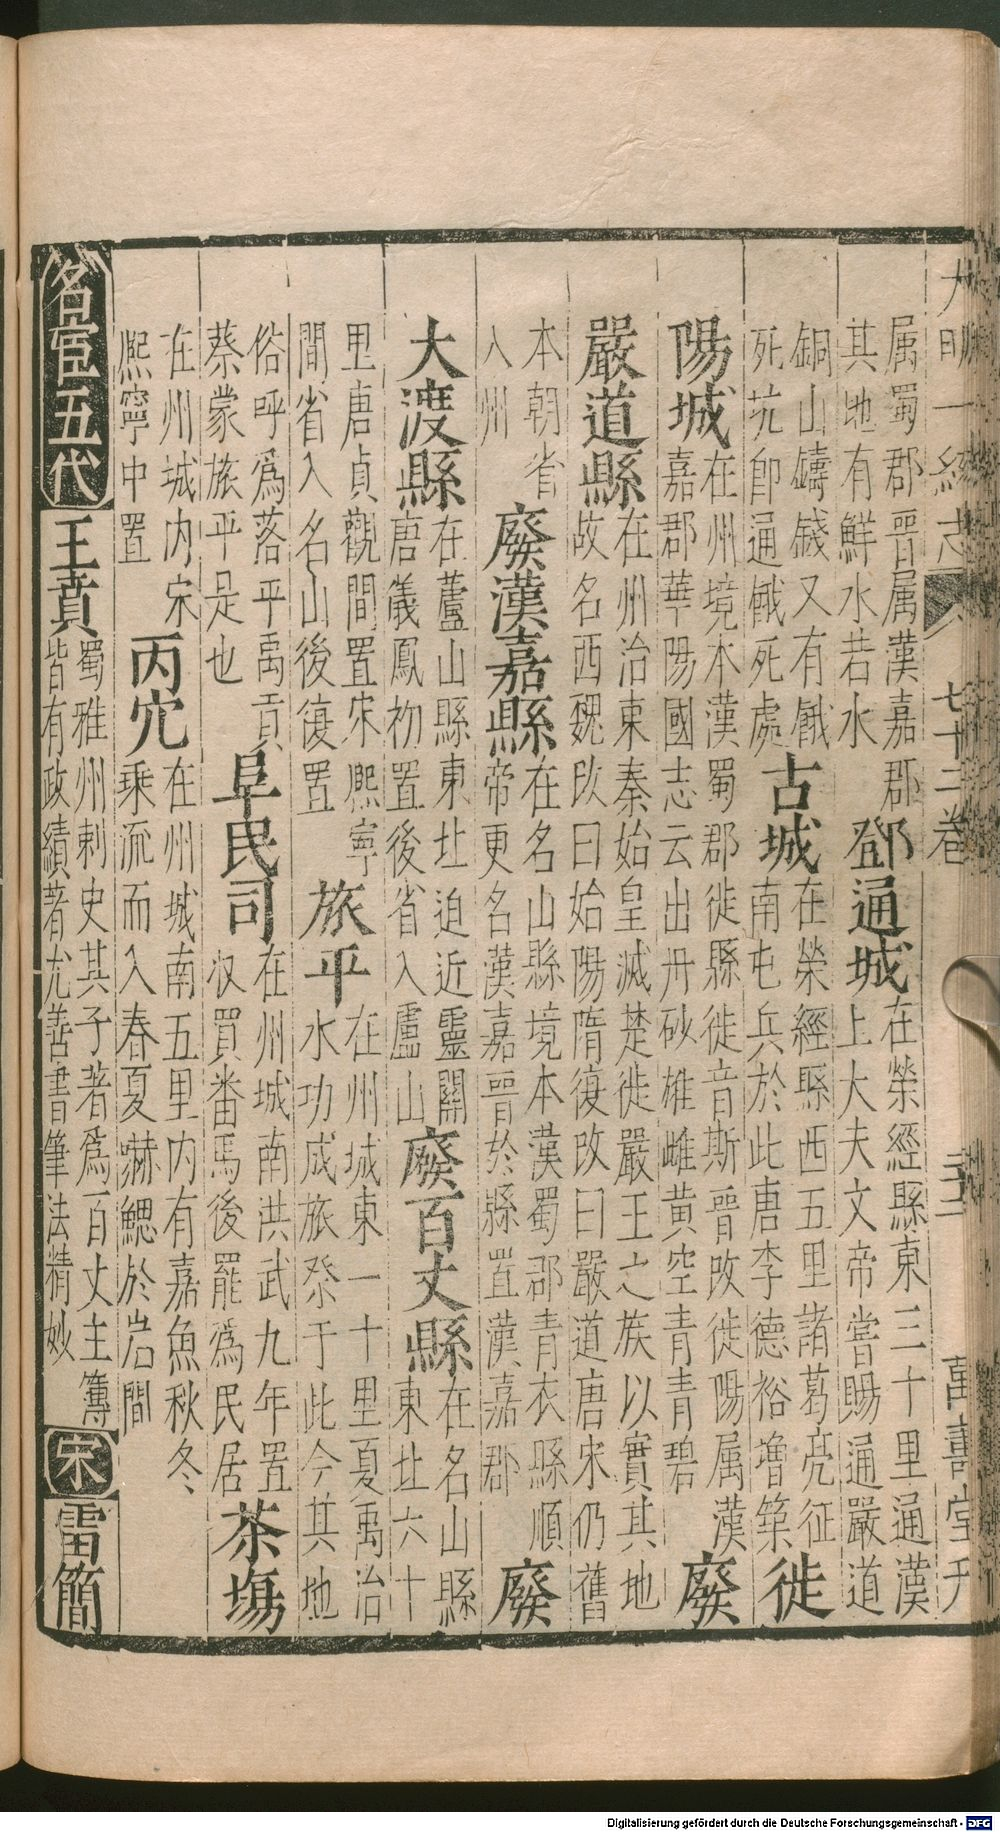 大明一統志 七十二卷 萬壽堂刊
属蜀郡晋属漢嘉郡
其地有鮮水若水
鄧通城
在榮經縣東三十里通漢
上大夫文帝嘗賜通嚴道
銅山鑄錢又有餓
死坑即通餓死處
古城
在榮經縣西五里諸葛亮征
南屯兵於此唐李德裕增築
徙
陽城
在州境本漢蜀郡徙縣徙音斯晋改徙陽属漢
嘉郡華陽國志云出丹砂雄雌黄空青青碧
廢
嚴道縣
在州治東秦始皇滅楚徙嚴王之族以實其地
故名西魏改曰始陽隋復改曰嚴道唐宋仍舊
本朝省
入州
廢漢嘉縣
在名山縣境本漢蜀郡青衣縣順
帝更名漢嘉晋於縣置漢嘉郡
廢
大渡縣
在蘆山縣東北迫近靈關
唐儀鳳初置後省入盧山
廢百丈縣
在名山縣
東北六十
里唐貞觀間置宋熈寧
間省入名山後復置
旅平
在州城東一十里夏禹治
水功成旅祭于此今其地
俗呼爲落平禹貢
蔡蒙旅平是也
阜民司
在州城南洪武九年置
収買番馬後罷爲民居
茶塲
在州城内宋
熈寧中置
丙穴
在州城南五里内有嘉魚秋冬
乘流而入春夏嚇鰓於岩間
名宦五代
王賁
蜀雅州刺史其子著爲百丈主簿
皆有政績著尤善書筆法精妙
宋
雷簡
Digitalisierung gefördert durch die Deutsche Forschungsgemeinschaft - DFG